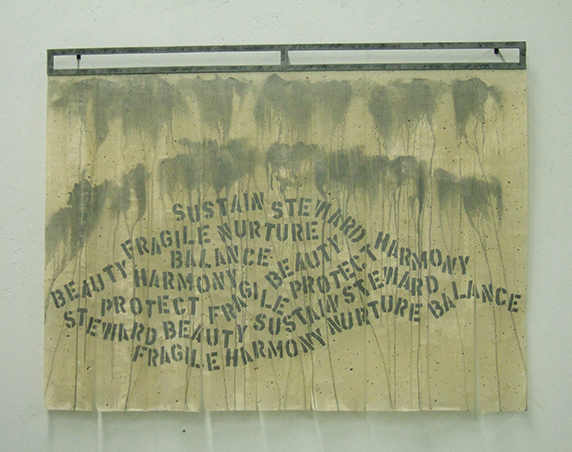 SUSTAIN STEWARD HARMONY
FRAGILE NURTURE
BALANCE BEAUTY
BEAUTY HARMONY PROTECT
PROTECT FRAGILE
STEWARD BEAUTY SUSTAIN STEWARD
FRAGILE HARMONY NURTURE BALANCE